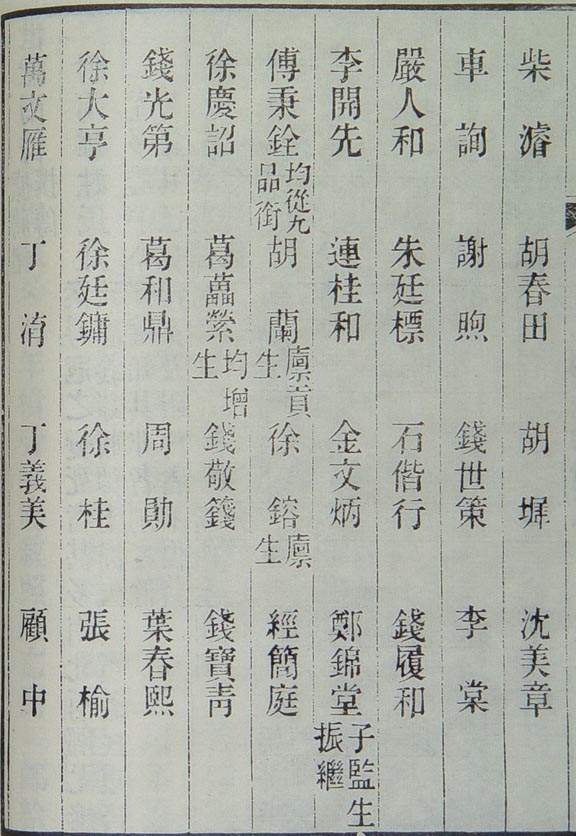 柴濬 胡春田 胡墀 沈美章
車詢 謝煦 錢世策 李棠
嚴人和 朱廷標 石偕行 錢履和
李開先 連桂和 金文炳 鄭錦堂子監生振繼
傅秉銓均從九品銜 胡蘭廩貢生 徐鎔廩生 經簡庭
徐慶詔 葛藟縈均增生 錢敬籛 錢寶青
錢光第 葛和鼎 周勛 葉春熙
徐大亨 徐廷鏞 徐桂 張榆
萬文雁 丁淯 丁義美 顧中